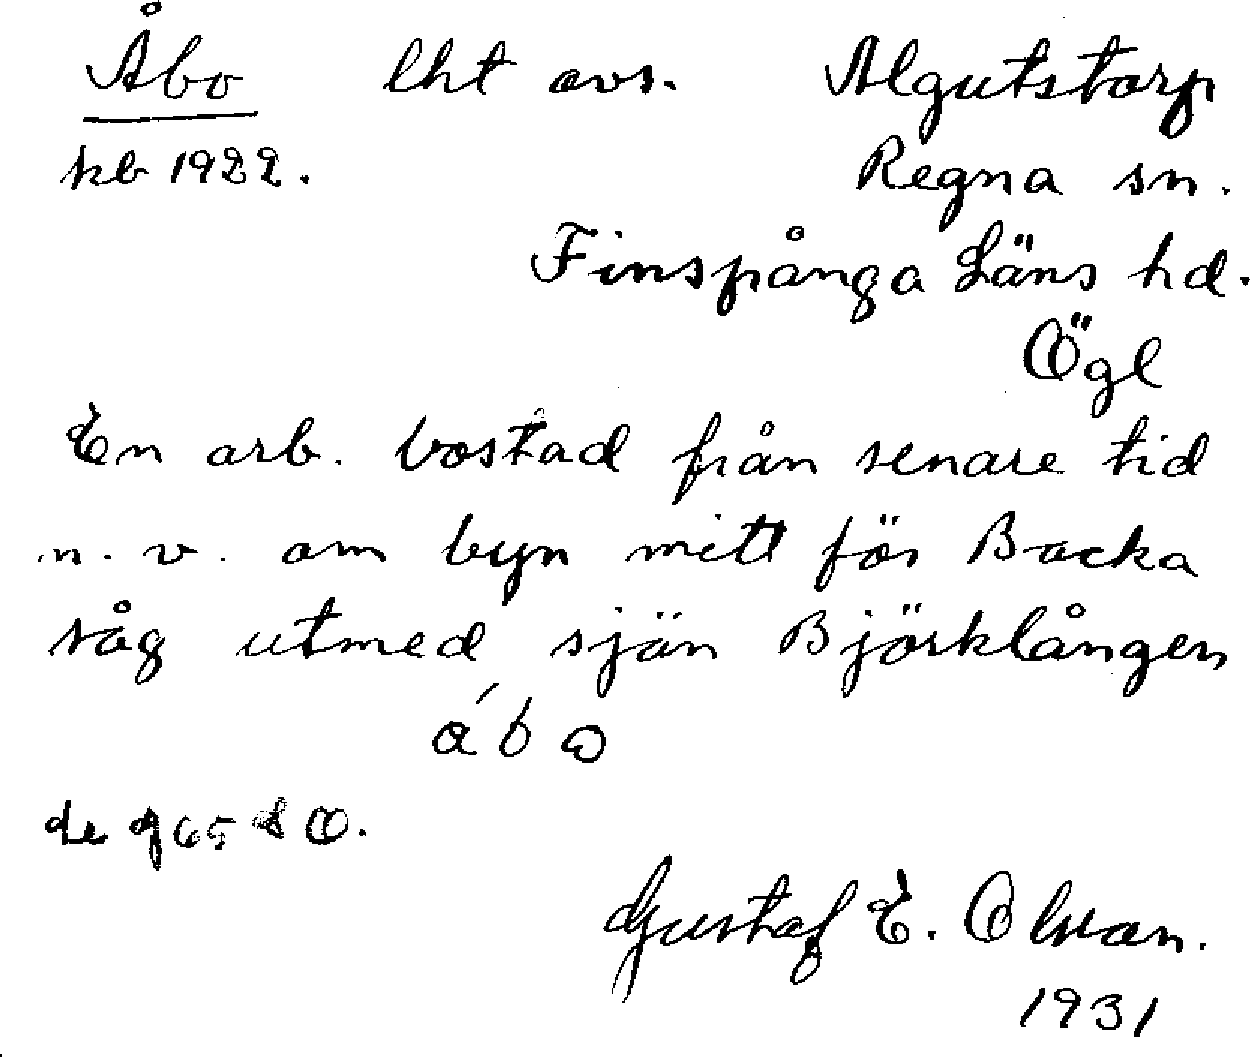 Åbo lht avs. Algutstorp
kb 1922. Regna sn.
Finspånga Läns hd.
Ögl
En arb. bostad från senare tid
n. v. om byn mitt för Backa
såg utmed sjön Björklången
ǻ b o
de g 65 d O.
Gustaf E. Olsson.
1931